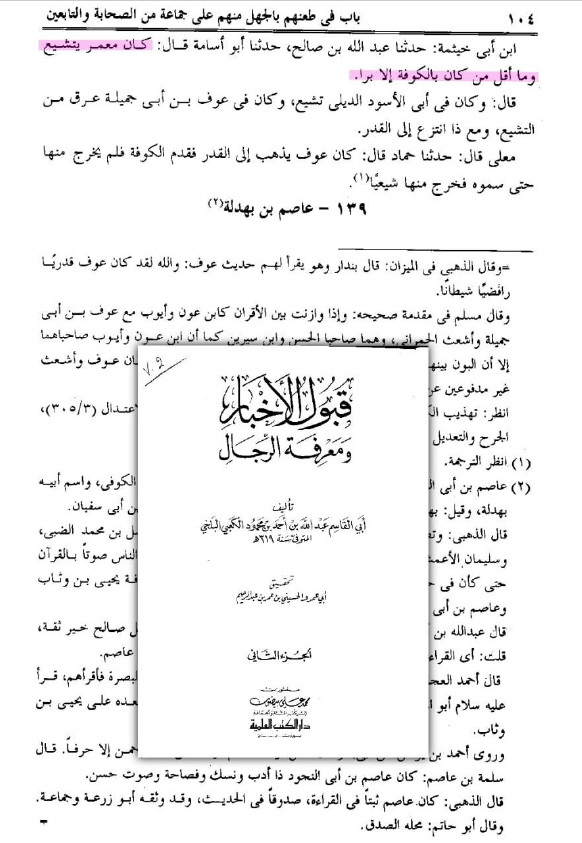 ١٠٤ باب فى طعنهم بالجهل منهم على جماعة من الصحابة والتابعين
ابن أبى خيثمة: حدثنا عبد الله بن صالح، حدثنا أبو أسامة قال: كان معمر يتشيع
وما أقل من كان بالكوفة إلا برا.
قال: وكان فى أبى الأسود الديلى تشيع، وكان فى عوف بن أبى جميلة عرق من
التشيع، ومع ذا انتزع إلى القدر.
معلى قال: حدثنا حماد قال: كان عوف يذهب إلى القدر فقدم الكوفة فلم يخرج منها
حتى سموه فخرج منها شيعيًا(١).
١٣٩ – عاصم بن بهدلة(٢)
=وقال الذهبى فى الميزان: قال بندار وهو يقرأ لهم حديث عوف: والله لقد كان عوف قدريًا
رافضيًا شيطانًا.
وقال مسلم فى مقدمة صحيحه: وإذا وازنت بين الأقران كابن عون وأيوب مع عوف بن أبى
جميلة وأشعث الحمرانى، وهما صاحبا الحسن وابن سيرين كما أن ابن عون وأيوب صاحباهما
إلا أن البون بينه
ان عوف وأشعث
غير مدفوعين عن
انظر: تهذيب الك
لاعتدال (٣٠٥/٣)،
الجرح والتعديل
(١) انظر الترجمة.
(٢) عاصم بن أبى الن
الكوفى، واسم أبيه
بهدلة، وقيل: به
ن أبى سفيان.
قال الذهبى: وتص
ل بن محمد الضبى،
وسليمان الأعمش
الناس صوتاً بالقرآن
حتى كأن فى ح
فة يحيى بن وثاب
وعاصم بن أبى
قال عبدالله بن
ل صالح خير ثقة،
قلت: أى القراء
عاصم.
قال أحمد العج
لبصرة فأقرأهم، قرأ
عليه سلام أبو ا
بعده على يحيى بن
وثاب.
وروى أحمد بن يو
حمن إلا حرفاً. قال
سلمة بن عاصم: كان عاصم بن أبى النجود ذا أدب ونسك وفصاحة وصوت حسن.
قال الذهبى: كان عاصم ثبتاً فى القراءة، صدوقاً فى الحديث، وقد وثقه أبو زرعة وجماعة.
وقال أبو حاتم: محله الصدق.
قبول الأخبار
ومعرفة الرجال
تأليف
أبي القاسم عبد الله بن أحمد بن محمود الكعبي البلخي
المتوفى سنة ٣١٩هـ
تحقيق
أبي عمرو الحسيني بن عمر بن عبد الرحيم
الجزء الثانى
منشورات
محمد علي بيضون
دار الكتب العلمية